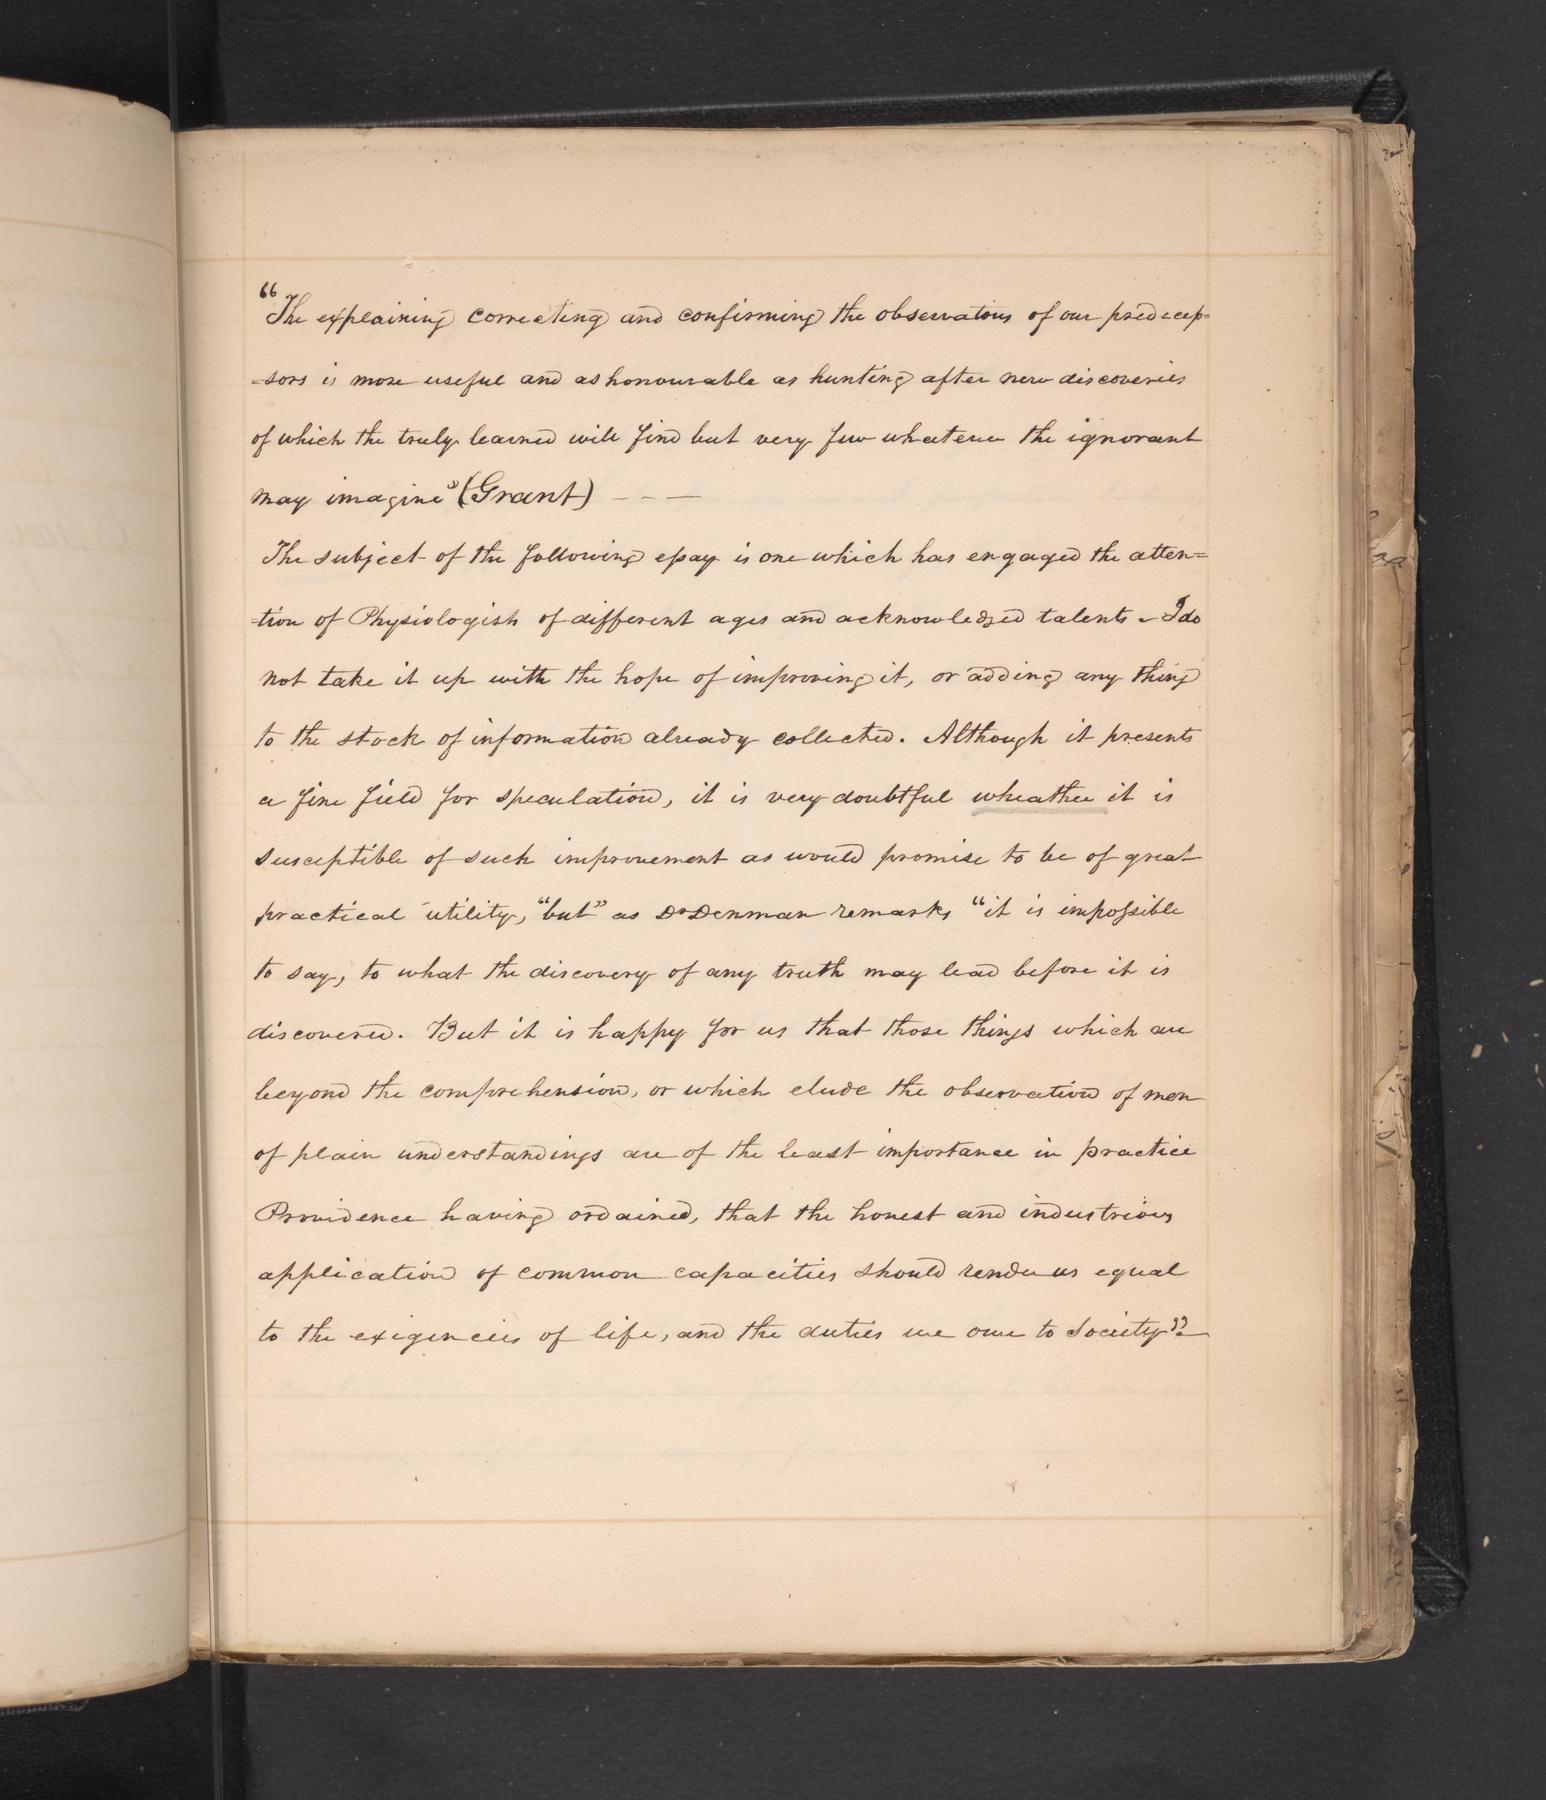 “The explaining correcting and confirming the observatons of our predecep=
=sors is more useful and as honourable as hunting after new discoveries
of which the truly learned will find but very few whatever the ignorant
may imagine” (Grant) – – —
The subject of the following essay is one which has engaged the atten=
=tion of Physiologists of different ages and acknowledged talents – I do
not take it up with the hope of improving it, or adding any thing
to the stock of information already collected. Although it presents
a fine field for speculation, it is very doubtful wheather it is
susceptible of such improvement as would promise to be of great
practical utility, “but” as Dr Denman remarks “it is impossible
to say, to what the discovery of any truth may lead before it is
discovered. But it is happy for us that those things which are
beyond the comprehension, or which elude the observation of men
of plain understandings are of the least importance in practice
Providence having ordained, that the honest and industrious
application of common capacities should render us equal
to the exigencies of life, and the duties we owe to Society”—